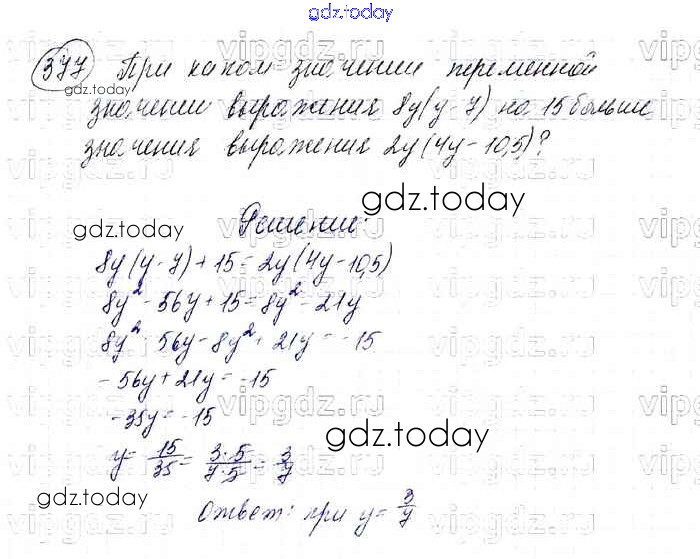 gdz.today
377 При каком значении переменной
значении выражения 8y(y-7) на 15 больше
значения выражения 2y(4y-10,5)?
gdz.today
gdz.today
gdz.today
Решение:
8y(y-7)+15=2y(4y-10,5)
8y²-56y+15=8y²-21y
8y²-56y-8y²+21y=-15
-56y+21y=-15
-35y=-15
y=15/35=3·5/7·5=3/7
gdz.today
gdz.today
Ответ: при y=3/7
vipgdz.ru